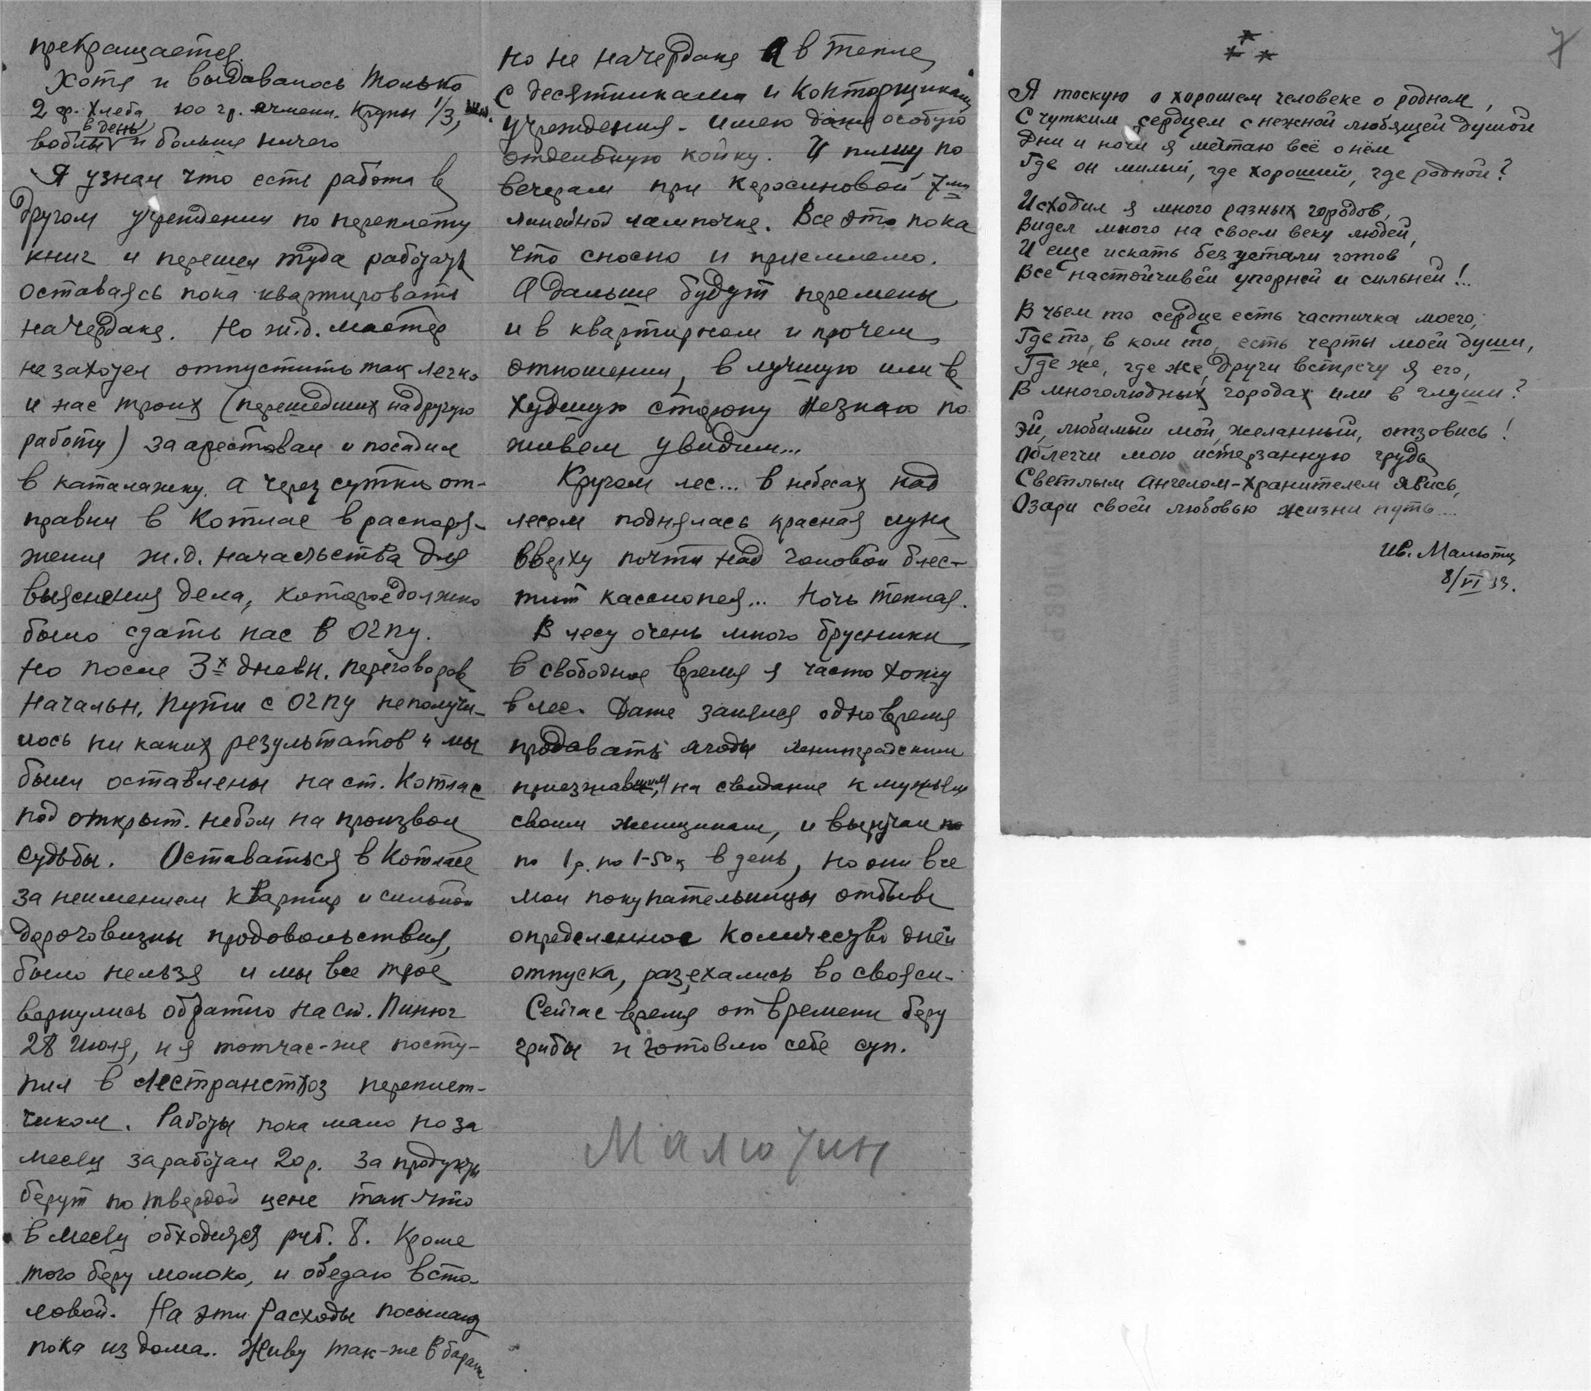 прекращается
Хотя и выдавалось только
2 ф. хлеба, 100 гр. ячменн. крупы 1/3,
воблы в день и больше ничего
Я узнал что есть работа в
другом учреждении по переплету
книг и перешел туда работать
оставаясь пока квартировать
на чердаке. Но ж.д. мастер
не захотел отпустить так легко
и нас троих (перешедших на другую
работу) за арестовал и посадил
в каталажку. А через сутки от-
правил в Котлас в распоря-
жение ж.д. начальства для
выяснения дела, которое должно
было сдать нас в ОГПУ.
Но после 3х дневн. переговоров
Начальн. Пути с ОГПУ не получи-
лось ни каких результатов и мы
были оставлены на ст. Котлас
под открыт. небом на произвол
судьбы. Оставаться в Котласе
за неимением квартир и сильной
дороговизны продовольствия,
было нельзя и мы все трое
вернулись обратно на ст. Пинюг
28 июля, и я тотчас-же посту-
пил в Лестрансхоз переплет-
чиком. Работы пока мало но за
месяц заработал 20 р. За продукты
берут по твердой цене так что
в месяц обходится руб. 8. Кроме
того беру молоко, и обедаю в сто-
ловой. На эти расходы посылают
пока из дома.. Живу так-же в бараке
но не на чердаке а в тепле
с десятниками и конторщиками
учреждения. Имею даже особую
отдельную койку. И пишу по
вечерам при керосиновой 7ми
линейной лампочке. Все это пока
что сносно и приемлемо.
А дальше будут перемены
и в квартирном и прочем
отношении, в лучшую или в
худшую сторону не знаю по
живем увидим...
Кругом лес... в небесах над
лесом поднялась красная луна
вверху почти над головой блес-
тит кассиопея... Ночь теплая.
В лесу очень много брусники
в свободное время я часто хожу
в лес. Даже занялся одно время
продавать ягоды ленинградским
приезжавшим, на свидание к мужьям
своим женщинам, и выручал по
по 1 р. по 1-50 к в день, но они все
мои покупательницы отбыв
определенное количество дней
отпуска, разъехались во свояси.
Сейчас время от времени беру
грибы и готовлю себе суп.
Малютин
7
* * *
Я тоскую о хорошем человеке о родном,
С чутким сердцем с нежной любящей душой
Дни и ночи я мечтаю всё о нём
Где он милый, где хороший, где родной?
Исходил я много разных городов,
Видел много на своем веку людей,
И еще искать без устали готов
Все настойчивей упорней и сильней!..
В чьем то сердце есть частичка моего,
Где то, в ком то, есть черты моей души,
Где же, где же други встречу я его,
В многолюдных городах или в глуши?
Эй, любимый мой, желанный, отзовись!
Облегчи мою истерзанную грудь
Светлым Ангелом-Хранителем явись,
Озари своей любовью жизни путь...
Ив. Малютин
8/VI 33.